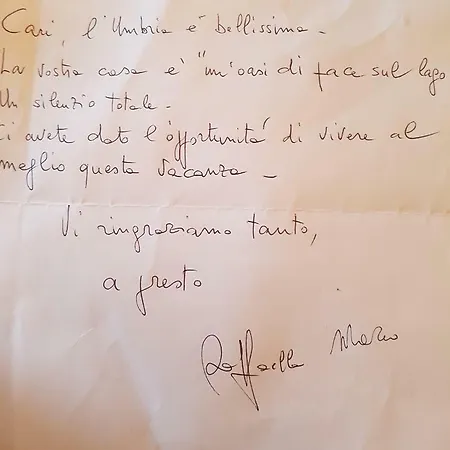 Cari, l'Umbria è bellissima -
La vostra casa è "un'oasi di pace sul lago
Un silenzio totale -
Ci avete dato l'opportunità di vivere al
meglio questa vacanza -
Vi ringraziamo tanto,
a presto
Raffaella Marco